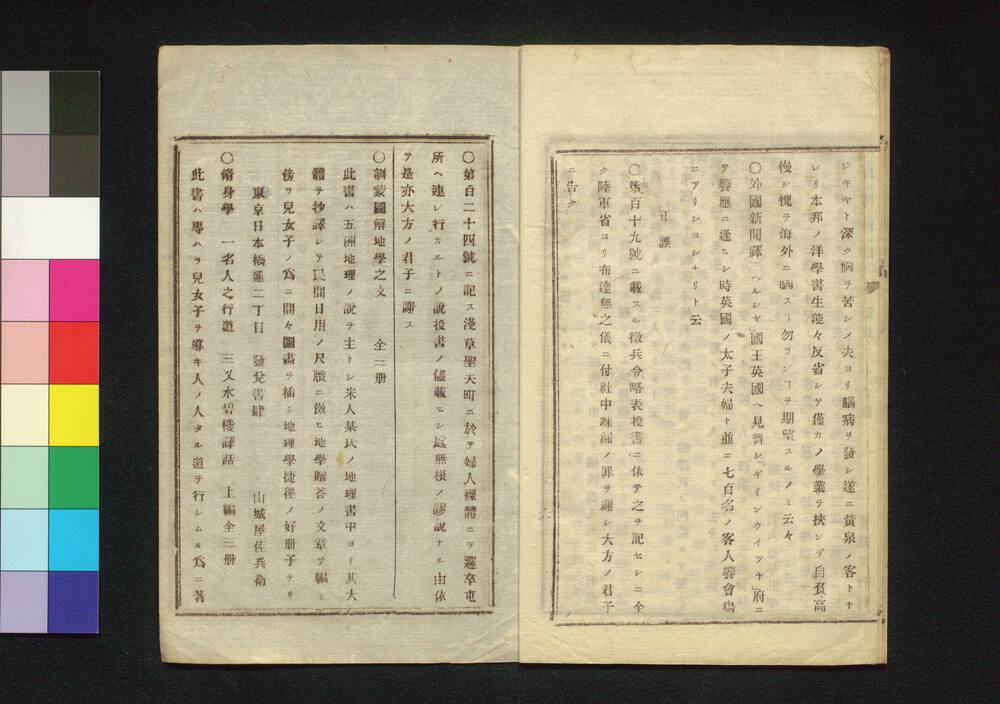 シキヤト深ク胸ヲ苦シメ夫ヨリ腦病ヲ發シ遂ニ黃泉ノ客トナ
レリ本邦ノ洋學書生能々反省シテ僅カノ學業ヲ挾ンデ自負高
慢シ愧ヲ海外ニ晒スヿ勿ランヿヲ期望スルノミ云々
〇外國新聞譯「ヘルシヤ」國王英國ヘ見舞シ「ギリンウイツチ」府ニ
ヲ饗應ニ逢ヒシ時英國ノ太子夫婦ト並ニ七百名ノ客人饗會塲
ニアリシヨシナリト云
正誤
〇第百十九號ニ載スル徵兵令略表投書ニ依テ之ヲ記セシニ全
ク陸軍省ヨリ布達無之儀ニ付社中疎漏ノ罪ヲ謝シ大方ノ君子
ニ告ク
〇第百二十四號ニ記ス淺草聖天町ニ於テ婦人裸體ニテ邏卒屯
所ヘ連レ行カルトノ說投書ノ儘載セシ處無根ノ謬說ナル由依
テ是亦大方ノ君子ニ謝ス
〇訓蒙圖解地學之文 全三册
此書ハ五洲地理ノ說ヲ主トシ米人某氏ノ地理書中ヨリ其大
體ヲ抄譯シテ民間日用ノ尺牘ニ倣ヒ地學贈答ノ文章ヲ編ミ
傍ヲ兒女子ノ爲ニ間々圖畵ヲ插ミ地理學捷徑ノ好册子ナリ
東京日本橋通二丁目 發兌書肆 山城屋佐兵衛
〇脩身學 一名人之行道 三叉水碧樓譯話 上編全三册
此書ハ專ハラ兒女子ヲ導キ人ノ人タル道ヲ行シムル爲ニ著